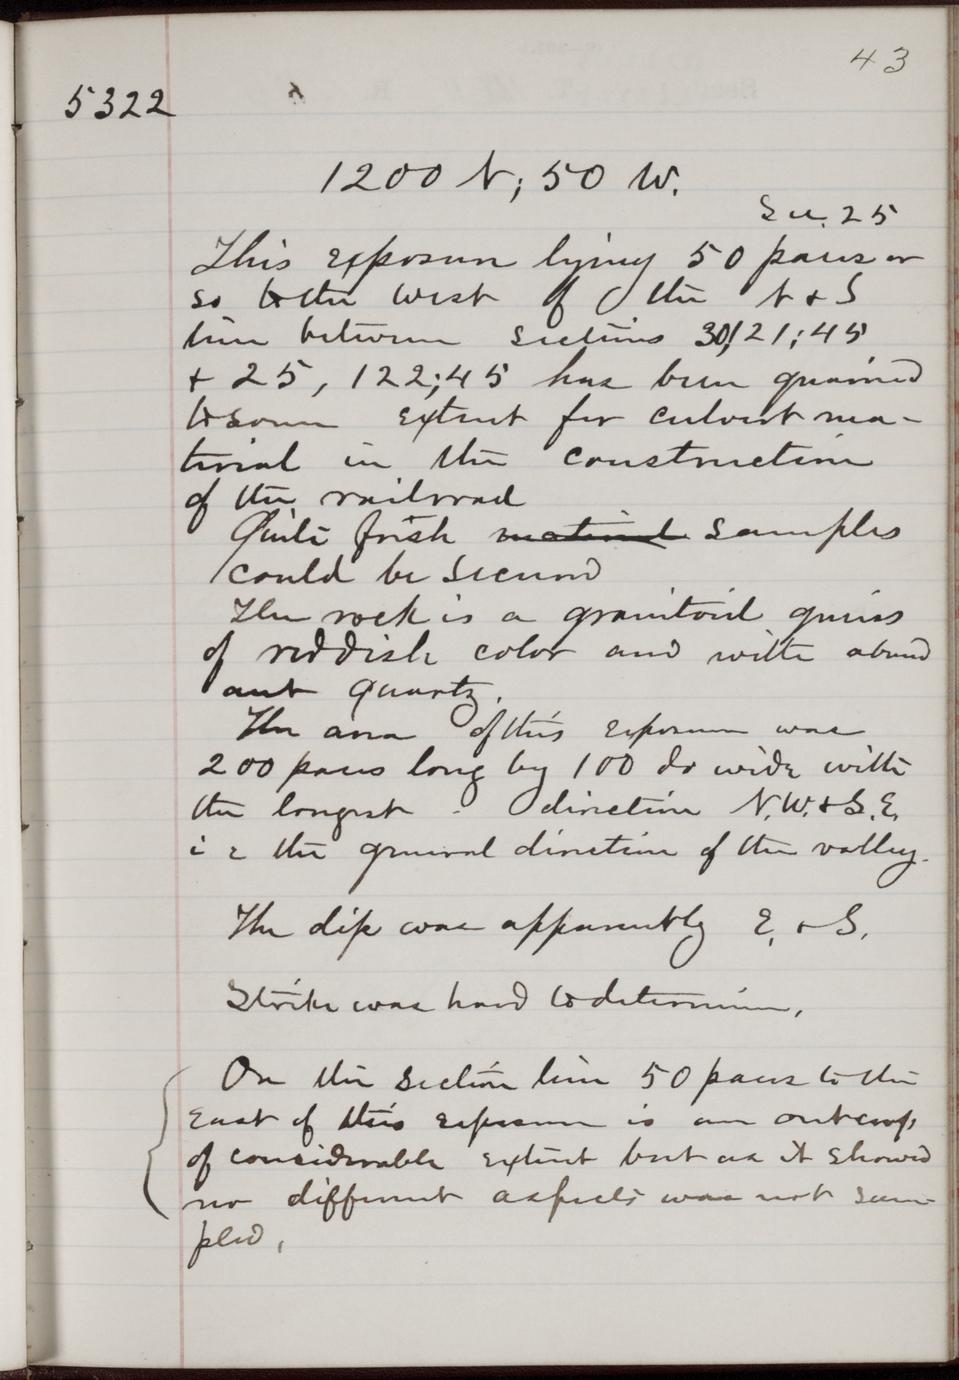 43
5322
1200 N; 50 W.
Sec. 25
This exposure lying 50 paces or
so to the west of the N + S
line between sections 30, 121; 45
+ 25, 122; 45 has been quarried
to some extent for culvert ma-
terial in the construction
of the railroad
Quite fresh material samples
could be secured
The rock is a granitoid gneiss
of reddish color and with abund
ant quartz.
The area of this exposure was
200 paces long by 100 do wide with
the longest - direction N.W. + S.E.
i e the general direction of the valley.
The dip was apparently E. + S.
Strike was hard to determine.
On the section line 50 paces to the
east of this exposure is an outcrop
of considerable extent but as it showed
no different aspects was not sam-
pled.